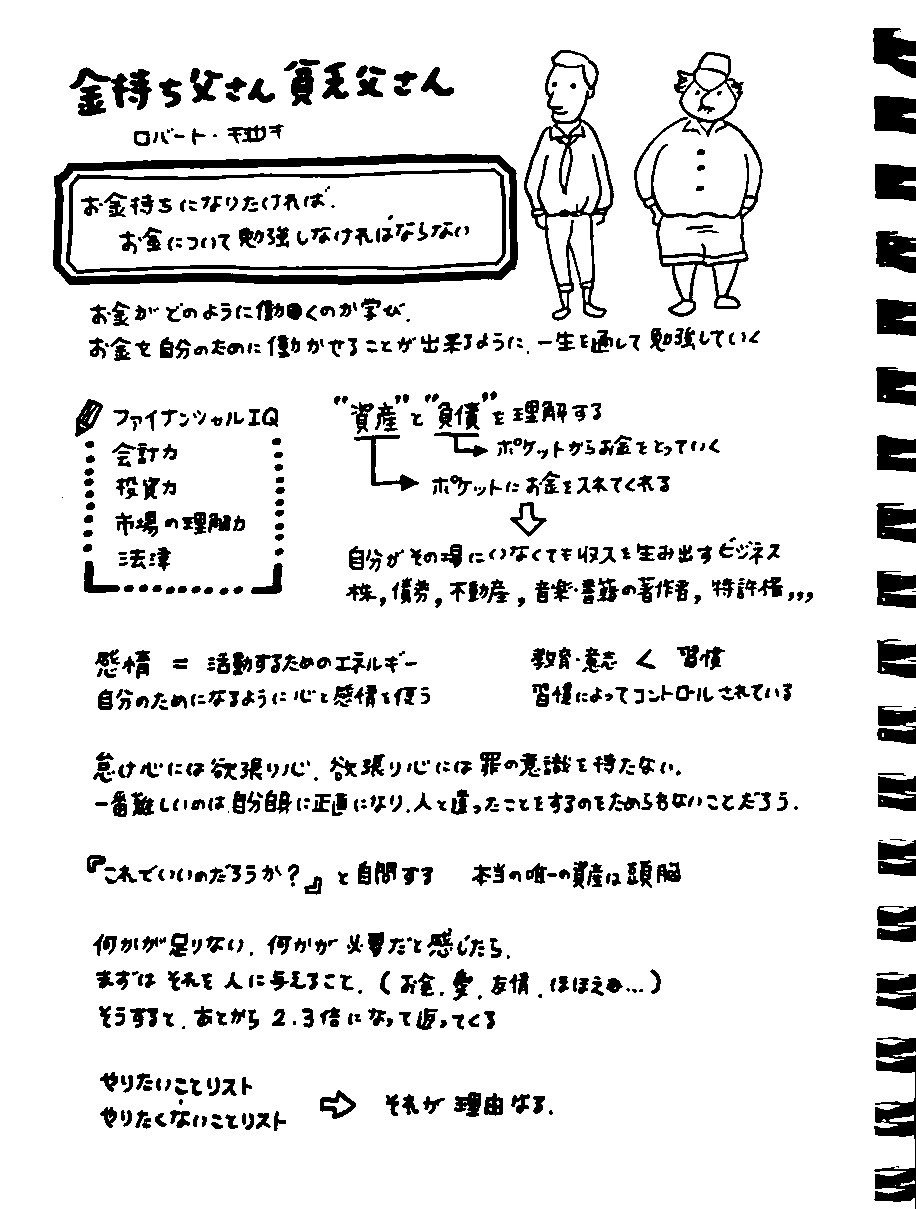 金持ち父さん 貧乏父さん
ロバート・キヨサキ
お金持ちになりたければ、
お金について勉強しなければならない
お金がどのように働くのか学び、
お金を自分のために働かせることが出来るように、一生を通して勉強していく
ファイナンシャルIQ
会計力
投資力
市場の理解力
法律
"資産"と"負債"を理解する
ポケットからお金をとっていく
ポケットにお金を入れてくれる
自分がその場にいなくても収入を生み出すビジネス
株,債券,不動産,音楽・書籍の著作者,特許権,,,
感情 = 活動するためのエネルギー
自分のためになるように心と感情を使う
教育・意志 < 習慣
習慣によってコントロールされている
怠け心には欲張り心、欲張り心には罪の意識を持たない。
一番難しいのは、自分自身に正直になり、人と違ったことをするのをためらわないことだろう.
『これでいいのだろうか?』と自問する 本当の唯一の資産は頭脳
何かが足りない、何かが必要だと感じたら、
まずはそれを人に与えること、(お金、愛、友情、ほほえみ...)
そうすると、あとから2.3倍になって返ってくる
やりたいことリスト
やりたくないことリスト
それが理由なる.